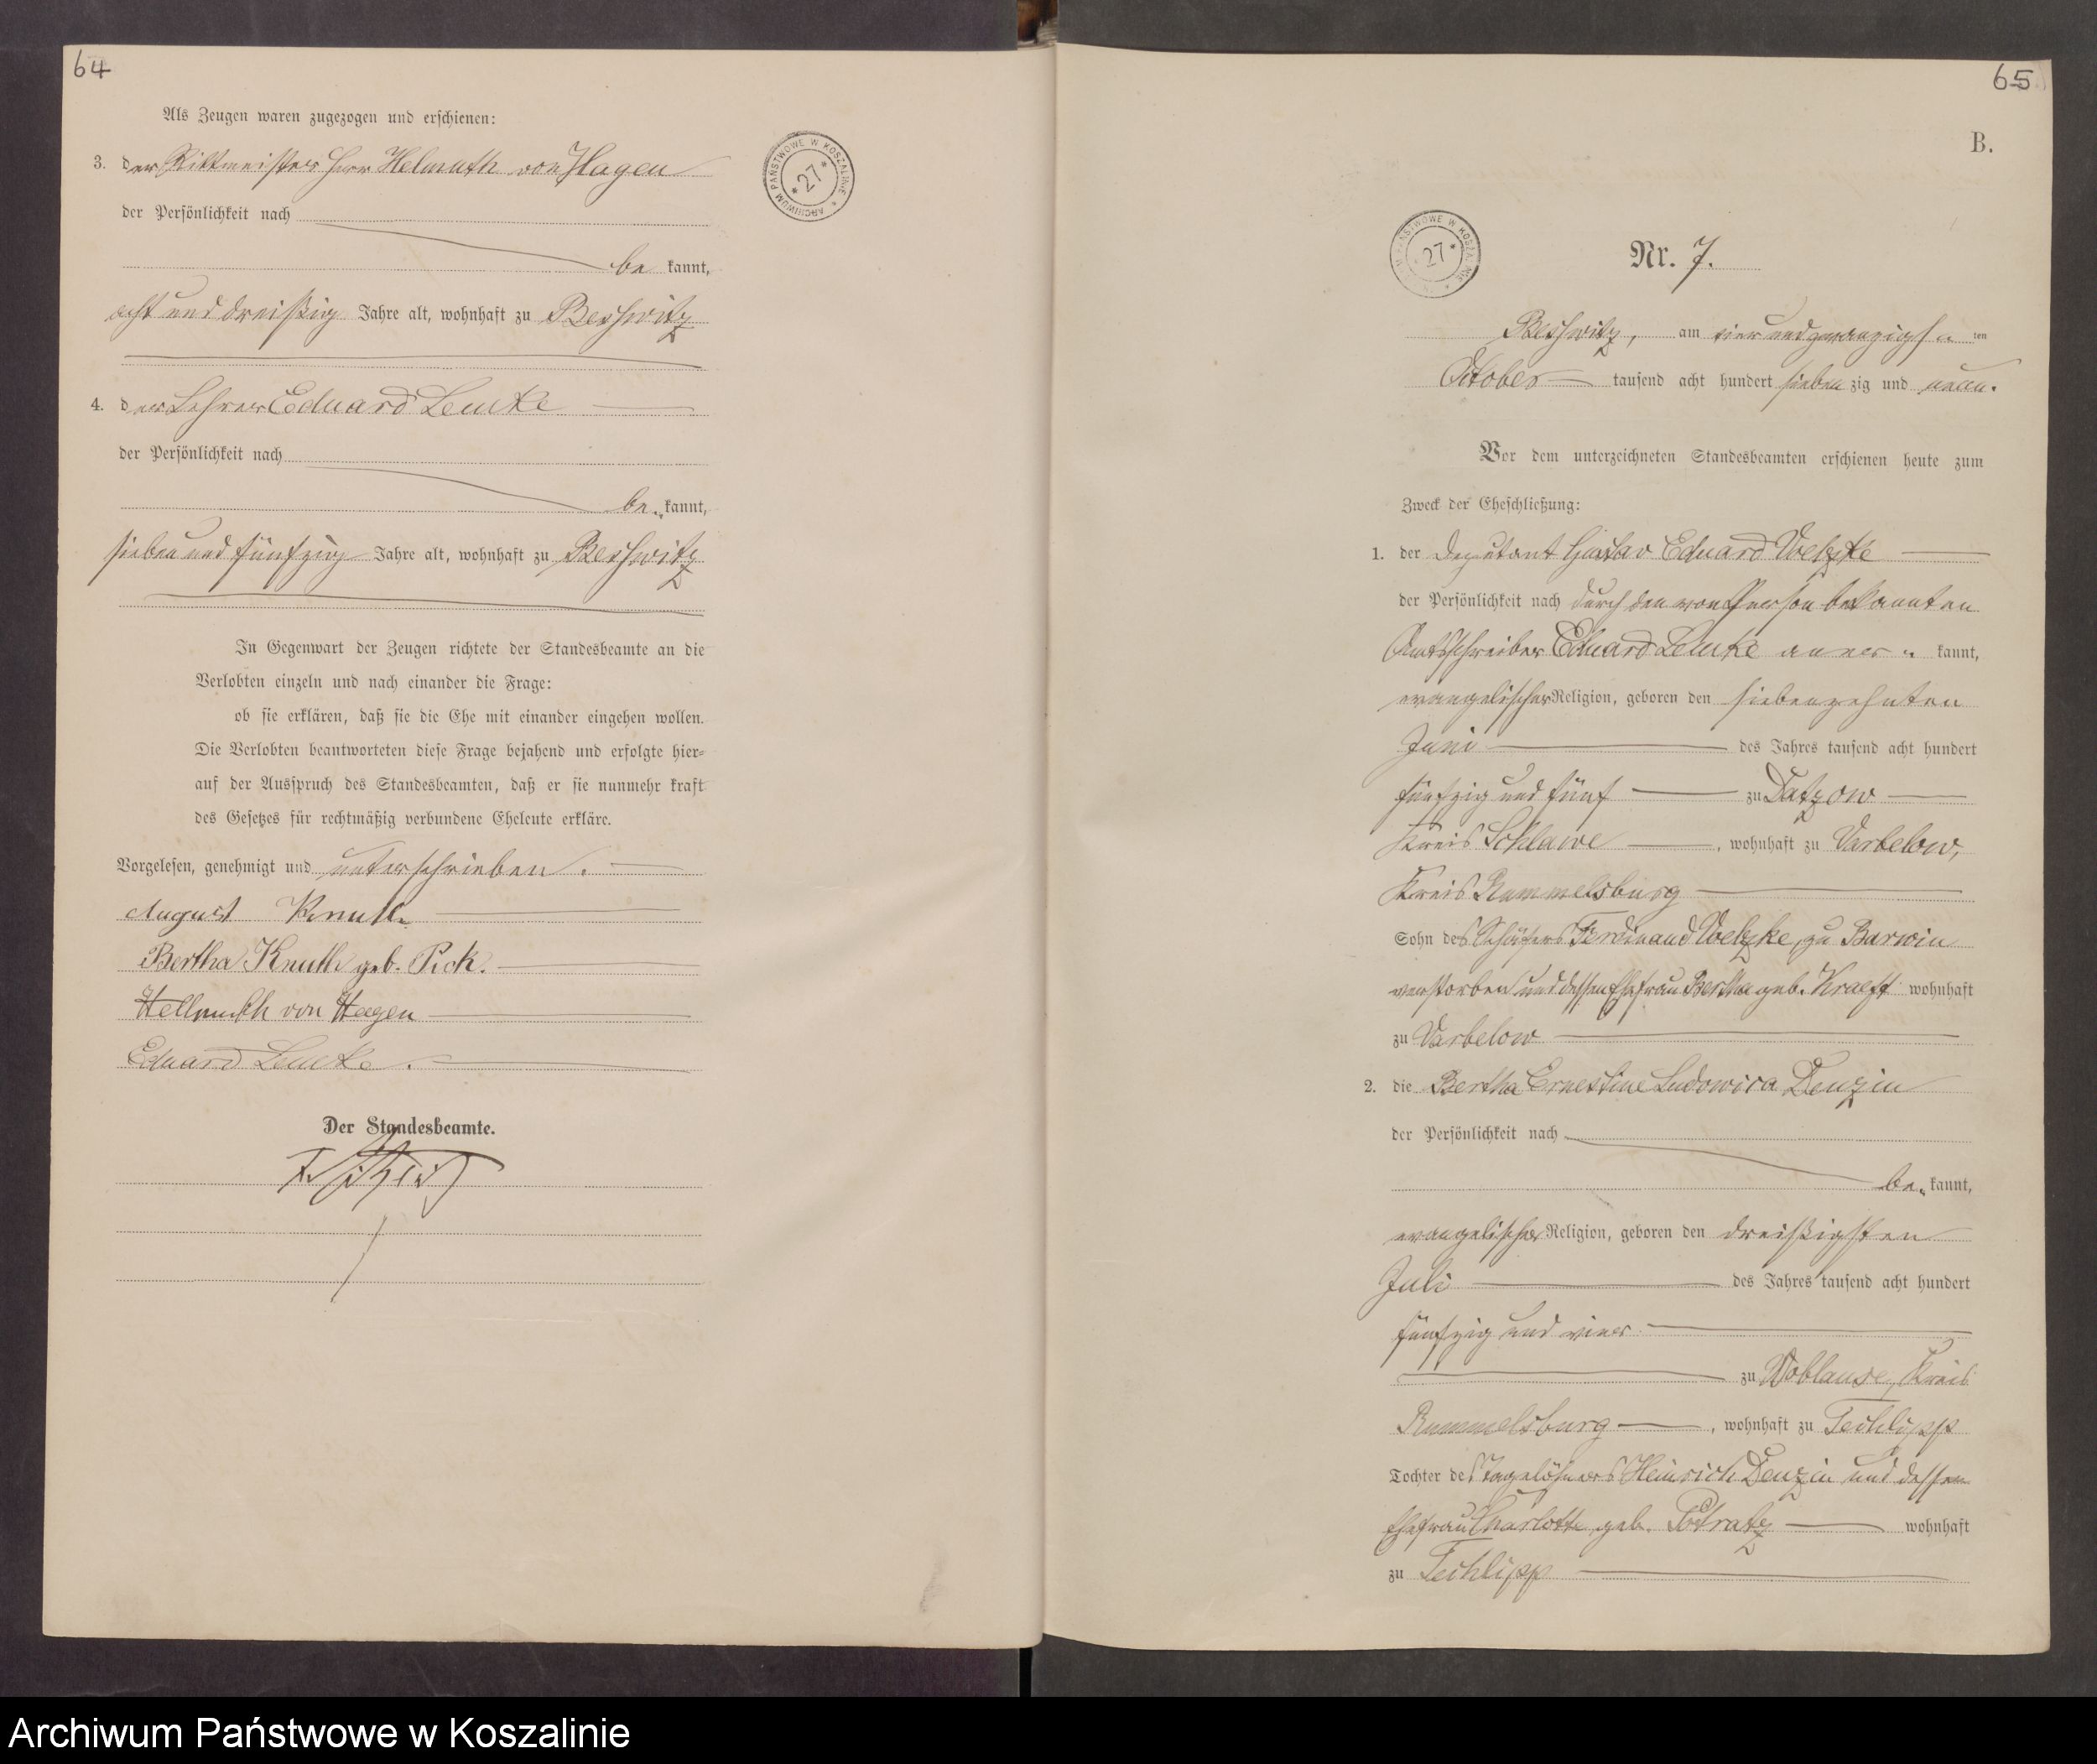 64
Als Zeugen waren zugezogen und erschienen:
3. der Rittmeister Herr Helmuth von Hagen
der Persönlichkeit nach
be kannt,
acht und dreißig Jahre alt, wohnhaft zu Beßwitz
4. der Lehrer Eduard Lemke
der Persönlichkeit nach
be kannt,
sieben und fünfzig Jahre alt, wohnhaft zu Beßwitz
In Gegenwart der Zeugen richtete der Standesbeamte an die
Verlobten einzeln und nach einander die Frage:
ob sie erklären, daß sie die Ehe mit einander eingehen wollen.
Die Verlobten beantworteten diese Frage bejahend und erfolgte hier-
auf der Ausspruch des Standesbeamten, daß er sie nunmehr kraft
des Gesetzes für rechtmäßig verbundene Eheleute erkläre.
Vorgelesen, genehmigt und unterschrieben.
August Knuth
Bertha Knuth geb. Pick.
Hellmuth von Hagen
Eduard Lemke.
Der Standesbeamte.
ARCHIWUM PAŃSTWOWE W KOSZALINIE
* 27 *
65
B.
ARCHIWUM PAŃSTWOWE W KOSZALINIE
* 27 *
Nr. 7.
Beßwitz, am vier und zwanzigsten
October tausend acht hundert siebenzig und neun.
Vor dem unterzeichneten Standesbeamten erschienen heute zum
Zweck der Eheschließung:
1. der Deputant Gustav Eduard Voelzke
der Persönlichkeit nach durch den von Person bekannten
Amtsschreiber Eduard Lemke aner kannt,
evangelischer Religion, geboren den siebenzehnten
Juni des Jahres tausend acht hundert
fünfzig und fünf zu Datzow
Kreis Schlawe, wohnhaft zu Varbelow,
Kreis Rummelsburg
Sohn des Schäfers Ferdinand Voelzke, zu Barwin
verstorben und dessen Ehefrau Bertha geb. Kraeft wohnhaft
zu Varbelow
2. die Bertha Ernestine Ludowica Denzin
der Persönlichkeit nach
be kannt,
evangelischer Religion, geboren den dreißigsten
Juli des Jahres tausend acht hundert
fünfzig und vier
zu Woblanse, Kreis
Rummelsburg, wohnhaft zu Techlipp
Tochter des Tagelöhners Heinrich Denzin und dessen
Ehefrau Charlotte geb. Podratz wohnhaft
zu Techlipp
Archiwum Państwowe w Koszalinie